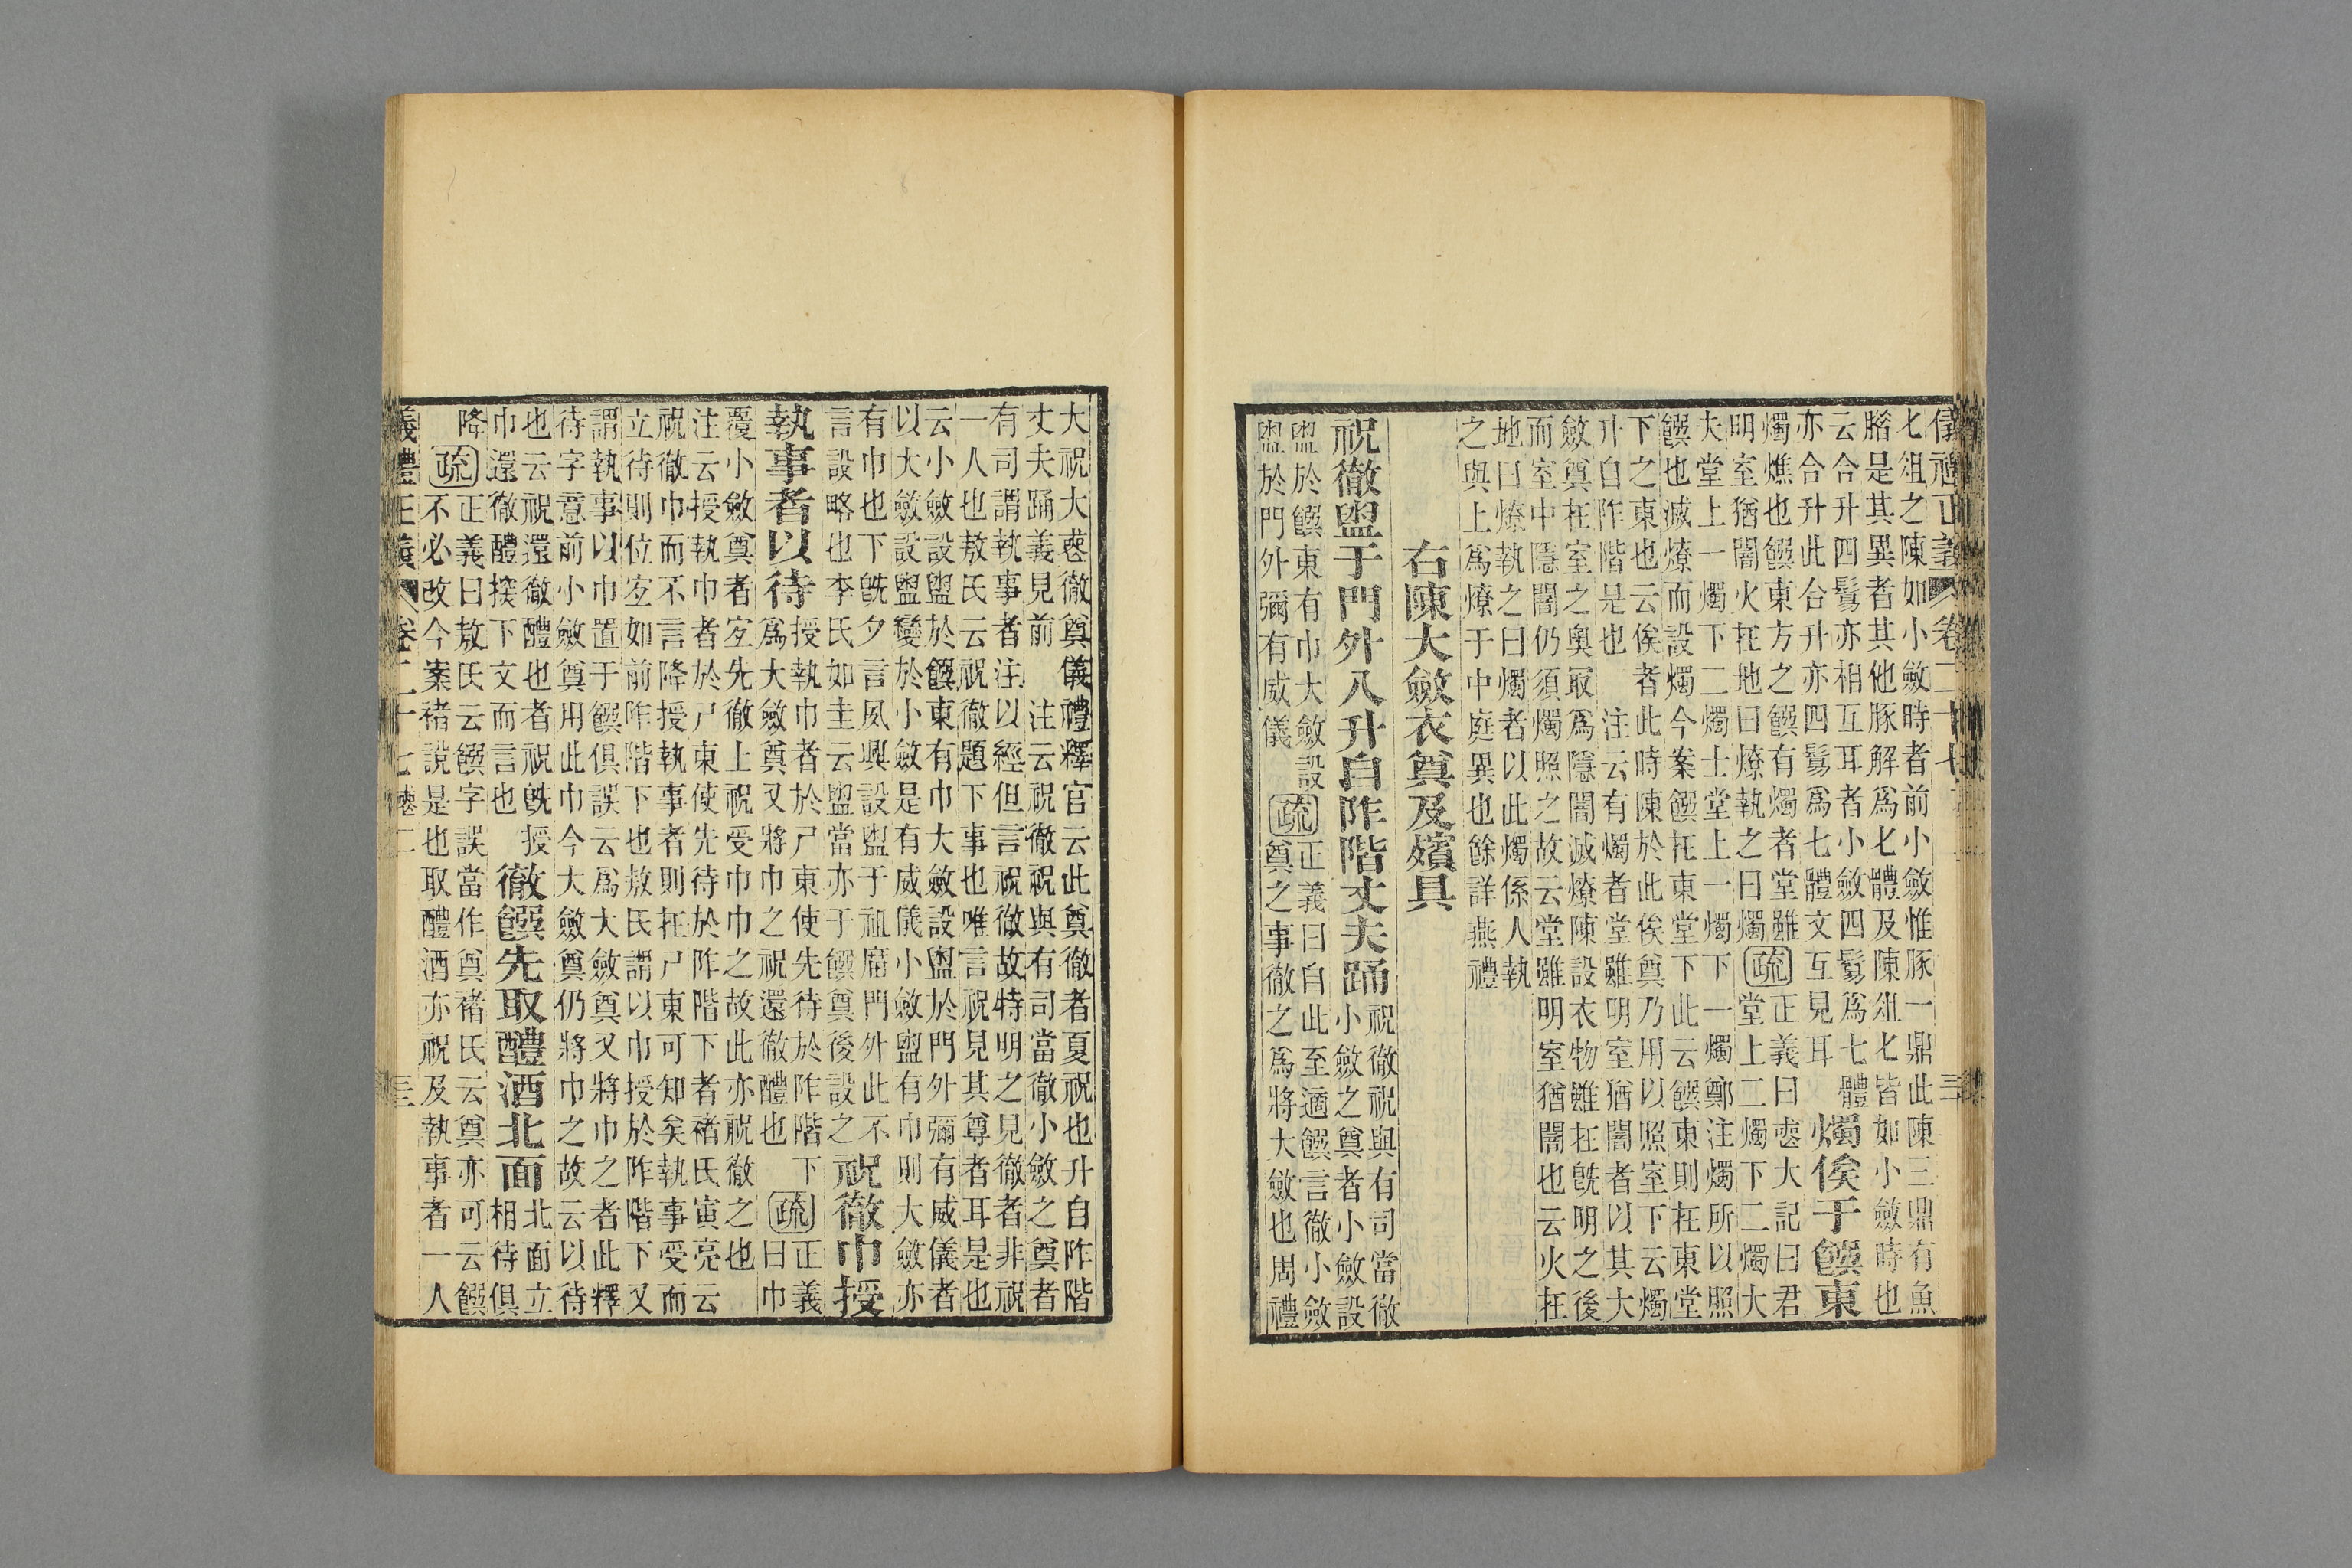 儀禮正義 卷二十七 三
匕俎之陳如小斂時者前小斂惟豚一鼎此陳三鼎有魚
腊是其異者其他豚解爲匕體及陳俎匕皆如小斂時也
云合升四鬄亦相互耳者小斂四鬄爲七體
亦合升此合升亦四鬄爲七體文互見耳
燭俟于饌東
燭燋也饌東方之饌有燭者堂雖
明室猶闇火在地曰燎執之曰燭
疏
正義曰喪大記曰君
堂上二燭下二燭大
夫堂上一燭下二燭士堂上一燭下一燭鄭注燭所以照
饌也滅燎而設燭今案饌在東堂下此云饌東則在東堂
下之東也云俟者此時陳於此俟奠乃用以照室下云燭
升自阼階是也 注云有燭者堂雖明室猶闇者以其大
斂奠在室之奧取爲隱闇滅燎陳設衣物雖在旣明之後
而室中隱闇仍須燭照之故云堂雖明室猶闇也云火在
地曰燎執之曰燭者以此燭係人執
之與上爲燎于中庭異也餘詳燕禮
右陳大斂衣奠及殯具
祝徹盥于門外入升自阼階丈夫踊
祝徹祝與有司當徹
小斂之奠者小斂設
盥於饌東有巾大斂設
盥於門外彌有威儀
疏
正義曰自此至適饌言徹小斂
奠之事徹之爲將大斂也周禮
大祝大喪徹奠儀禮釋官云此奠徹者夏祝也升自阼階
丈夫踊義見前 注云祝徹祝與有司當徹小斂之奠者
有司謂執事者注以經但言祝徹故特明之見徹者非祝
一人也敖氏云祝徹題下事也唯言祝見其尊者耳是也
云小斂設盥於饌東有巾大斂設盥於門外彌有威儀者
以大斂設盥變於小斂是有威儀小斂盥有巾則大斂亦
有巾也下旣夕言夙興設盥于祖廟門外此不
言設略也李氏如圭云盥當亦于饌奠後設之
祝徹巾授
執事者以待
授執巾者於尸東使先待於阼階下
爲大斂奠又將巾之祝還徹醴也
疏
正義
曰巾
覆小斂奠者室先徹上祝受巾巾之故此亦祝徹之也
注云授執巾者於尸東使先待於阼階下者褚氏寅亮云
祝徹巾而不言降授執事者則在尸東可知矣執事受而
立待則位宜如前阼階下也敖氏謂以巾授於阼階下又
謂執事以巾置于饌俱誤云爲大斂奠又將巾之者此釋
待字意前小斂奠用此巾今大斂奠仍將巾之故云以待
也云祝還徹醴也者祝旣授
巾還徹醴㨒下文而言也
徹饌先取醴酒北面
北面立
相待俱
降
疏
正義曰敖氏云饌字誤當作奠褚氏云奠亦可云饌
不必改今案褚說是也取醴酒亦祝及執事者一人
儀禮正義 卷二十七 喪二 三